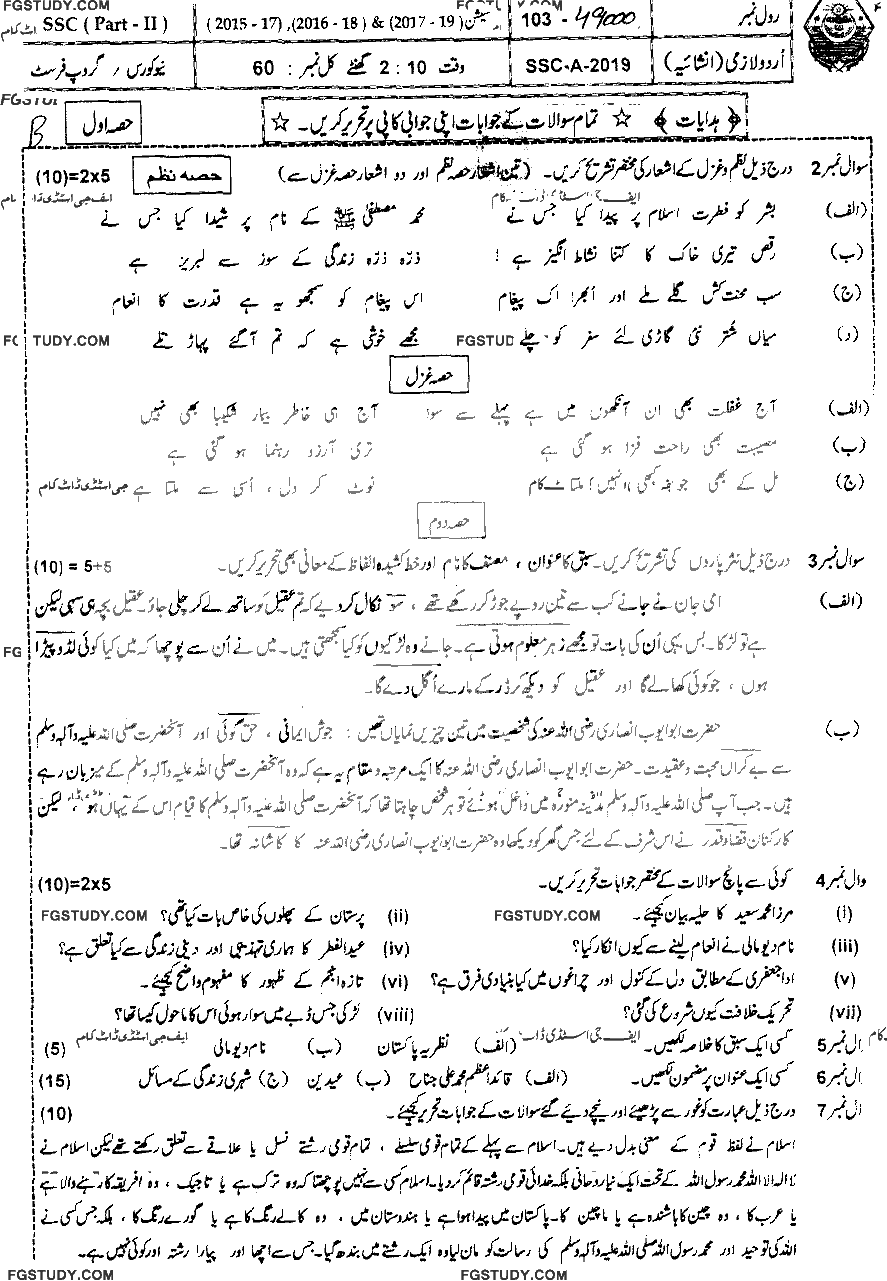 FGSTUDY.COM
رول نمبر 103 - 49000 سیشن (19 - 2017) & (18 - 2016), (17 - 2015) SSC ( Part - II )
اردو لازمی (انشائیہ) SSC-A-2019 وقت 10 : 2 گھنٹے کل نمبر : 60 نیو کورس / گروپ فرسٹ
﴿ ہدایات ﴾ ☆ تمام سوالات کے جوابات اپنی جوابی کاپی پر تحریر کریں۔ ☆ حصہ اول
سوال نمبر 2 درج ذیل نظم و غزل کے اشعار کی مختصر تشریح کریں۔ (تین اشعار حصہ نظم اور دو اشعار حصہ غزل سے) حصہ نظم (10)=2x5
ایف جی اسٹڈی ڈاٹ کام
(الف) بشر کو فطرت اسلام پر پیدا کیا جس نے محمد مصطفیٰ ﷺ کے نام پر شیدا کیا جس نے
(ب) رقص تیری خاک کا کتنا نشاط انگیز ہے ! ذرّہ ذرّہ زندگی کے سوز سے لبریز ہے
(ج) سب محنت کش گلے ملے اور اُبھرا اک پیغام اس پیغام کو سمجھو یہ ہے قدرت کا انعام
(د) میاں شُتر نئی گاڑی لئے سفر کو چلے مجھے خوشی ہے کہ تم آگئے پہاڑ تلے
FGSTUDY.COM
حصہ غزل
(الف) آج غفلت بھی ان آنکھوں میں ہے پہلے سے سوا آج ہی خاطر بیمار شکیبا بھی نہیں
(ب) مصیبت بھی راحت فزا ہو گئی ہے تری آرزو رہنما ہو گئی ہے
(ج) مل کے بھی جو کبھی نہیں ملتا ٹوٹ کر دل ، اُسی سے ملتا ہے
حصہ دوم
سوال نمبر 3 درج ذیل نثر پاروں کی تشریح کریں۔ سبق کا عنوان ، مصنف کا نام اور خط کشیدہ الفاظ کے معانی بھی تحریر کریں۔ (10) = 5+5
(الف) امی جان نے جانے کب سے تین روپے جوڑ کر رکھے تھے ، سو نکال کر دیے کہ تم عقیل کو ساتھ لے کر چلی جاؤ۔ عقیل بچہ ہی سہی لیکن
ہے تو لڑکا۔ بس یہی اُن کی بات تو مجھے زہر معلوم ہوتی ہے۔ جانے وہ لڑکیوں کو کیا سمجھتی ہیں۔ میں نے اُن سے پوچھا کہ میں کیا کوئی لڈو پیڑا
ہوں ، جو کوئی کھا لے گا اور عقیل کو دیکھ کر ڈر کے مارے اُگل دے گا۔
(ب) حضرت ابو ایوب انصاری رضی اللہ عنہ کی شخصیت میں تین چیزیں نمایاں تھیں : جوش ایمانی ، حق گوئی اور آنحضرت صلی اللہ علیہ وآلہ وسلم
سے بے کراں محبت و عقیدت۔ حضرت ابو ایوب انصاری رضی اللہ عنہ کا ایک مرتبہ و مقام یہ ہے کہ وہ آنحضرت صلی اللہ علیہ وآلہ وسلم کے میزبان رہے
ہیں۔ جب آپ صلی اللہ علیہ وآلہ وسلم مدینہ منورہ میں داخل ہوئے تو ہر شخص چاہتا تھا کہ آنحضرت صلی اللہ علیہ وآلہ وسلم کا قیام اس کے یہاں ہو ، لیکن
کارکنان قضا و قدر نے اس شرف کے لئے جس گھر کو دیکھا وہ حضرت ابو ایوب انصاری رضی اللہ عنہ کا کاشانہ تھا۔
وال نمبر 4 کوئی سے پانچ سوالات کے مختصر جوابات تحریر کریں۔ (10)=2x5
(i) مرزا محمد سعید کا حلیہ بیان کیجئے۔ (ii) پرستان کے پھلوں کی خاص بات کیا تھی؟
FGSTUDY.COM FGSTUDY.COM
(iii) نام دیو مالی نے انعام لینے سے کیوں انکار کیا؟ (iv) عید الفطر کا ہماری تہذیبی اور دینی زندگی سے کیا تعلق ہے؟
(v) ادا جعفری کے مطابق دل کے کنول اور چراغوں میں کیا بنیادی فرق ہے؟ (vi) تازہ انجم کے ظہور کا مفہوم واضح کیجئے۔
(vii) تحریک خلافت کیوں شروع کی گئی؟ (viii) لڑکی جس ڈبے میں سوار ہوئی اس کا ماحول کیسا تھا؟
ال نمبر 5 کسی ایک سبق کا خلاصہ لکھیں۔ (الف) نظریہ پاکستان (ب) نام دیو مالی (5)
ال نمبر 6 کسی ایک عنوان پر مضمون لکھیں۔ (الف) قائد اعظم محمد علی جناح (ب) عیدین (ج) شہری زندگی کے مسائل (15)
ال نمبر 7 درج ذیل عبارت کو غور سے پڑھیئے اور نیچے دیئے گئے سوالات کے جوابات تحریر کیجئے۔ (10)
اسلام نے لفظ قوم کے معنی بدل دیے ہیں۔ اسلام سے پہلے کے تمام قومی سلسلے ، تمام قومی رشتے نسل یا علاقے سے تعلق رکھتے تھے لیکن اسلام نے
لا الہ الا اللہ محمد رسول اللہ کے تحت ایک نیا روحانی بلکہ خدائی قومی رشتہ قائم کر دیا۔ اسلام کسی سے نہیں پوچھتا کہ وہ ترک ہے یا تاجیک ، وہ افریقہ کا رہنے والا ہے
یا عرب کا ، وہ چین کا باشندہ ہے یا ماچین کا۔ پاکستان میں پیدا ہوا ہے یا ہندوستان میں ، وہ کالے رنگ کا ہے یا گورے رنگ کا ، بلکہ جس کسی نے
اللہ کی توحید اور محمد رسول اللہ صلی اللہ علیہ وآلہ وسلم کی رسالت کو مان لیا وہ ایک رشتے میں بندھ گیا۔ جس سے اچھا اور پیارا رشتہ اور کوئی نہیں ہے۔
FGSTUDY.COM FGSTUDY.COM